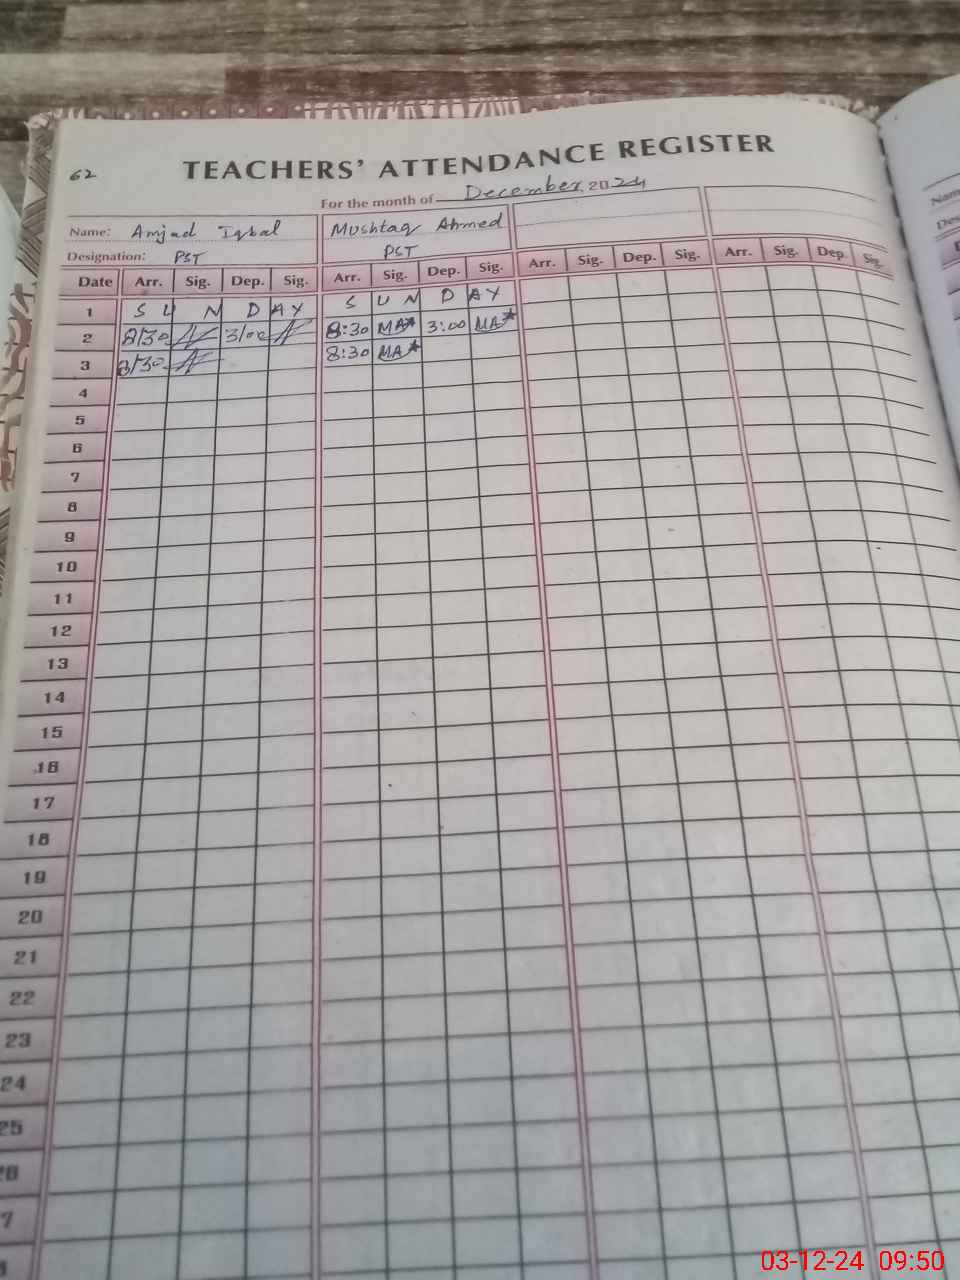 62
TEACHERS' ATTENDANCE REGISTER
For the month of December, 2024
Name: Amjad Iqbal Mushtaq Ahmed
Designation: PST PST
Date Arr. Sig. Dep. Sig. Arr. Sig. Dep. Sig. Arr. Sig. Dep. Sig. Arr. Sig. Dep. Sig.
1 S U N D A Y S U N D A Y
2 8/30 3/00 8:30 MA 3:00 MA
3 8/30 8:30 MA
4
5
6
7
8
9
10
11
12
13
14
15
16
17
18
19
20
21
22
23
24
25
26
7
Name
03-12-24 09:50